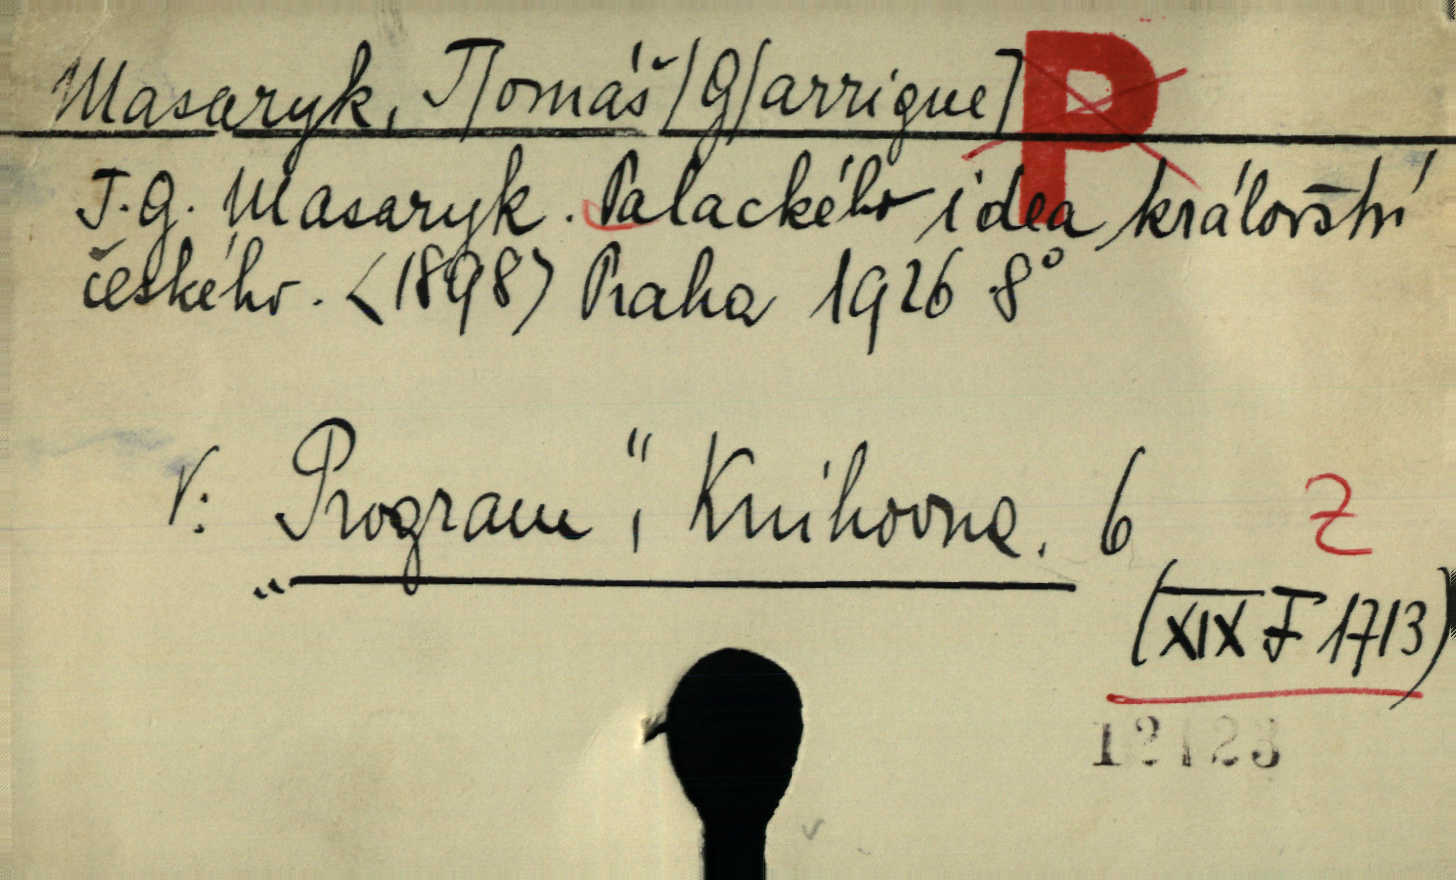 Masaryk, T/omáš/ G/arrigue/
P
T. G. Masaryk. Palackého idea království
českého. <1898> Praha 1926 8°
V: "Program", Knihovna. 6
Z
(XIX F 1713)